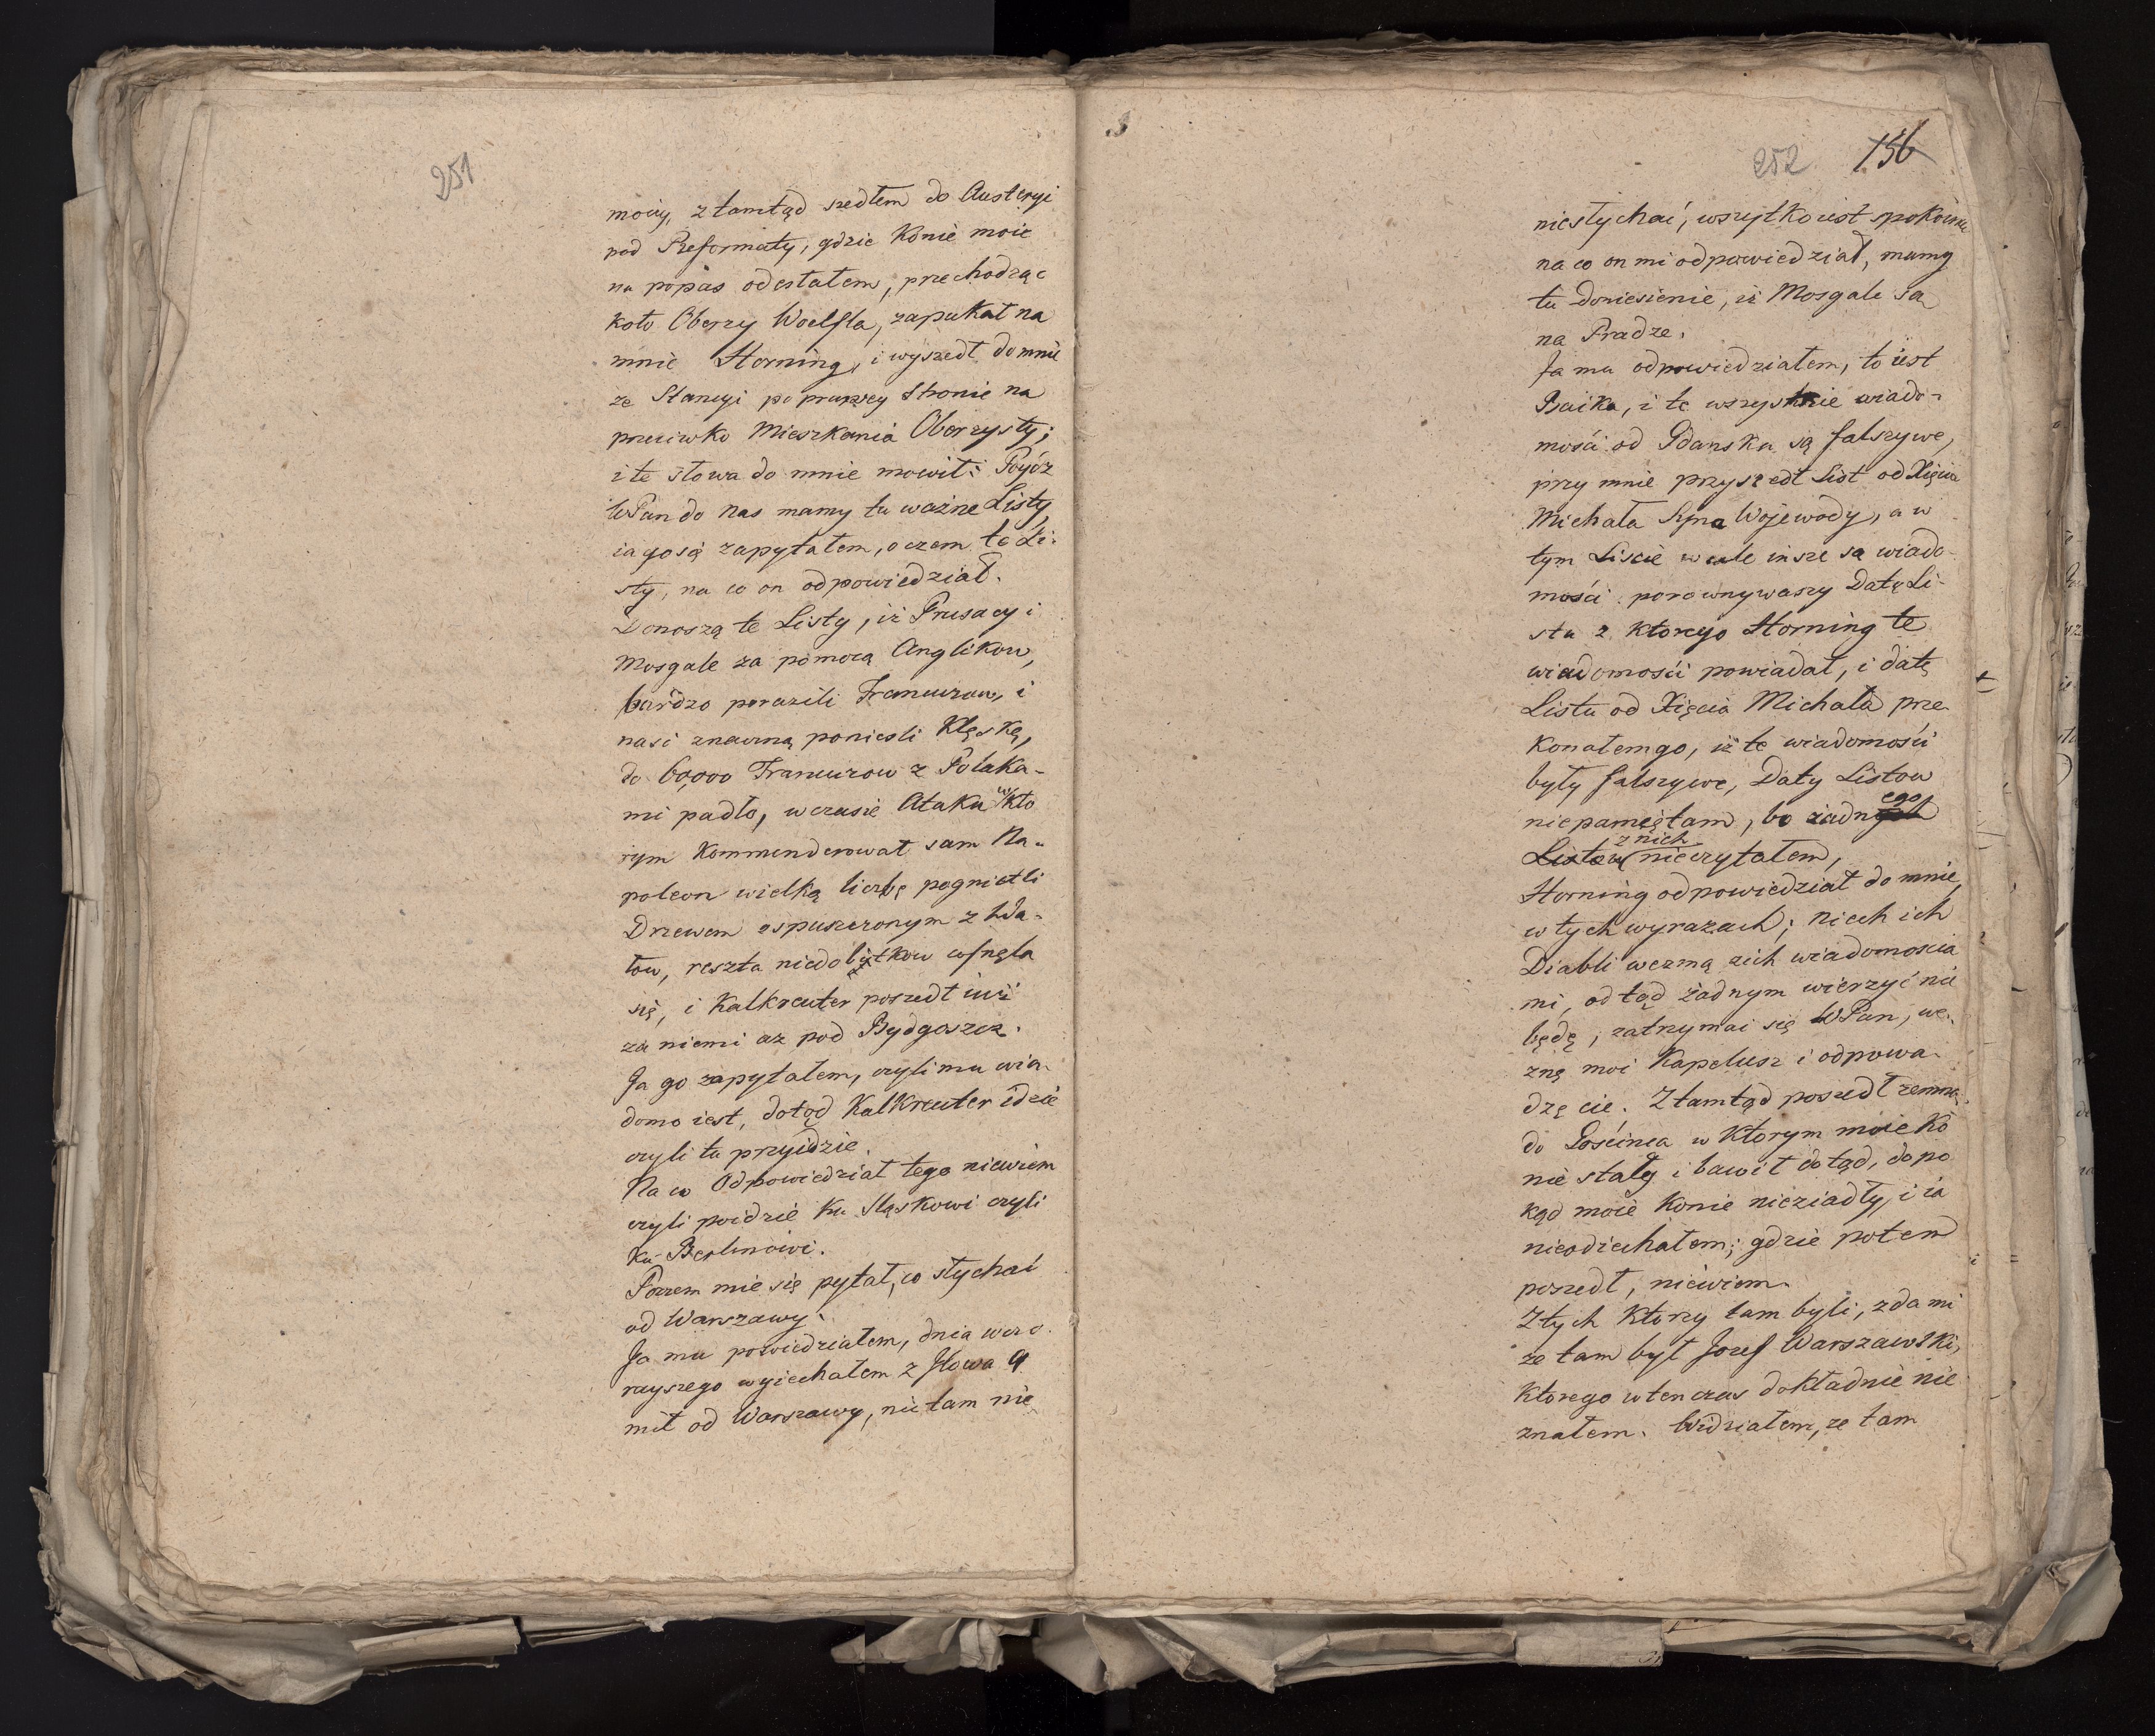 251
moiey, z tamtąd szedłem do Austeryi
pod Reformaty, gdzie Konie moie
na popas odesłałem, przechodząc
koło Oberzy Woelfla, zapukał na
mnie Horning, i wyszedł do mnie
ze Stancyi po prawey Stronie na
przeciwko Mieszkania Oberzysty;
i te słowa do mnie mowił: Poyóz
WPan do nas mamy tu ważne Listy
ia go się zapytałem, o czem te Li-
sty, na co on odpowiedział.
Donoszą te Listy, iż Prusacy i
Mosgale za pomocą Anglikow,
bardzo porazili Francuzow, i
nasi znaczną poniesli Klęskę,
do 60,000 Francuzow z Polaka-
mi padło, w czasie Ataku w Kto
rym Kommenderował sam Na-
poleon wielką liczbę pogniotli
Drzewem ospuszczonym z Wa-
łow, reszta niedobitkow cofnęła
się, i Kalkreuter poszedł iuż
za niemi az pod Bydgoszcz.
Ja go zapytałem, czyli mu wia-
domo iest, dotąd Kalkreuter idzie
czyli tu przyidzie.
Na co Odpowiedział tego niewiem
czyli poidzie ku Sląskowi czyli
ku Berlinowi.
Poczem mie się pytał, co słychać
od Warszawy.
Ja mu powiedziałem, dnia wczo-
rayszego wyiechałem z Iłowa 9
mil od Warszawy, nic tam nie
252 156
niesłychać, wszytko iest spokoinie
na co on mi odpowiedział, mamy
tu doniesienie, iż Mosgale są
na Pradze.
Ja mu odpowiedziałem, to iest
Baika, i te wszystkie wiado-
mości od Gdanska są fałszywe,
przy mnie przyszedł List od Xięcia
Michała Syna Wojewody, a w
tym Liscie wcale insze są wiado-
mości porownywaszy Datę Li-
stu z ktorego Horning te
wiadomości powiadał, i datę
Listu od Xięcia Michała prze
konałem go, iż te wiadomości
były fałszywe, Daty Listow
niepamiętam, bo żadnego
Listow z nich nieczytałem,
Horning odpowiedział do mnie
w tych wyrazach; niech ich
Diabli wezmą zich wiadomoscia
mi, od tąd żadnym wierzyć nie
będę, zatrzymai się WPan, we-
znę moi Kapelusz i odprowa-
dzę cie. Ztamtąd poszedł zemną
do Gościnca w Ktorym moie Ko
nie stały i bawił dotąd, dopo
kąd moie Konie nieziadły, i ia
nieodiechałem; gdzie potem
poszedł, niewiem.
Z tych Ktorzy tam byli, zda mi
ze tam był Jozef Warszawski,
Ktorego wtenczas dokładnie nie
znałem. Widziałem, ze tam